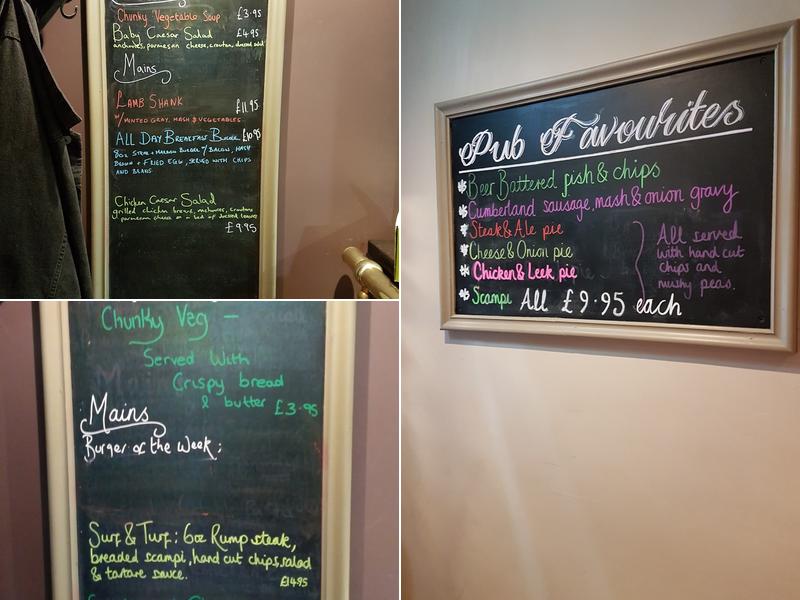 Chunky Vegetable Soup £3.95
Baby Caesar Salad £4.95
anchovies, parmesan cheese, crouton, dressed salad
Mains
LAMB SHANK £11.95
W/MINTED GRAVY, MASH & VEGETABLES
ALL DAY BREAKFAST BURGER £10.95
8oz STEAK + BURGER W/ BACON, HASH
BROWN + FRIED EGG, SERVED WITH CHIPS
AND BEANS
Chicken Caesar Salad
grilled chicken breast, anchovies, croutons
parmesan cheese on a bed of dressed leaves
£9.95
Chunky Veg –
Served With
Crispy bread
& butter £3.95
Mains
Burger of the Week:
Surf & Turf: 6oz Rump steak,
breaded scampi, hand cut chips, salad
& tartare sauce.
£14.95
Pub Favourites
Beer Battered fish & chips
Cumberland sausage, mash & onion gravy
Steak & Ale pie
Cheese & Onion pie
Chicken & Leek pie
Scampi
All served
with hand cut
chips and
mushy peas.
All £9.95 each